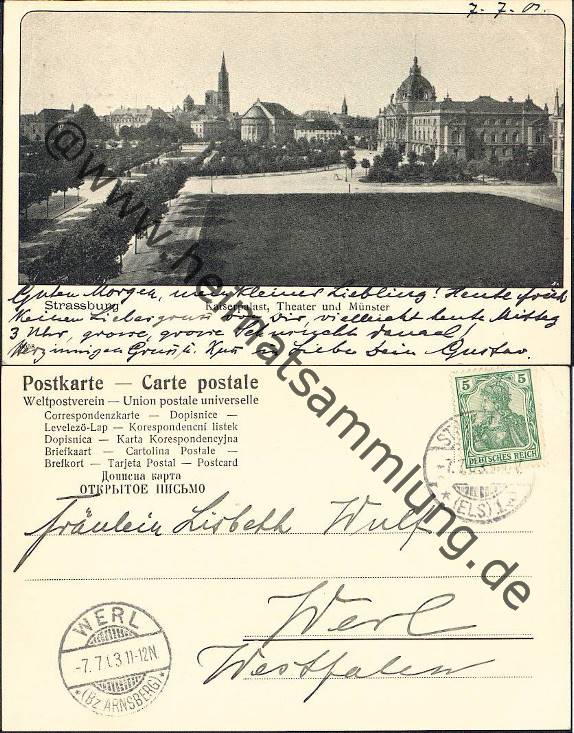 7. 7. 03.
Strassburg Kaiserpalast, Theater und Münster
Guten Morgen, mein kleiner Liebling! Heute früh
keinen Liebesgruss von Dir, vielleicht heute Mittag
3 Uhr, grosse, grosse Sehnsucht danach!
Herzinnigen Gruss u. Kuss in Liebe Dein Gustav.
Postkarte — Carte postale
Weltpostverein — Union postale universelle
Correspondenzkarte — Dopisnice —
Levelező-Lap — Korespondencní listek
Dopisnica — Karta Korespondencyjna
Briefkaart — Cartolina Postale —
Brefkort — Tarjeta Postal — Postcard
Дописна карта
ОТКРЫТОЕ ПИСЬМО
5 5
DEUTSCHES REICH
(ELS)
Fräulein Lisbeth Wulf
Werl
Westfalen
WERL
-7.7.03 11-12N.
*(Bz ARNSBERG)*
@www.heimatsammlung.de